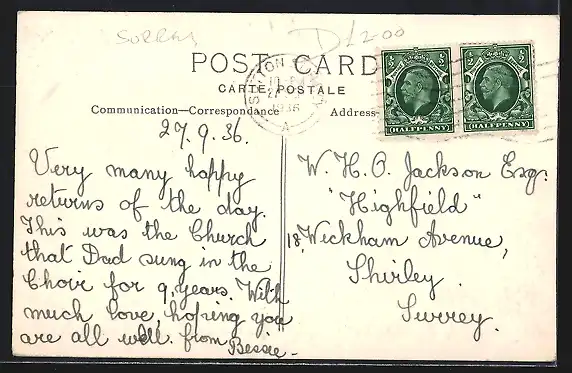 SURREY
D £2-00
POST CARD
CARTE POSTALE
Communication—Correspondance
Address-
SUTTON
1936
A
HALFPENNY
HALFPENNY
27.9.36.
Very many happy
returns of the day.
This was the Church
that Dad sung in the
Choir for 9, years. With
much love, hoping you
are all well. from
Bessie-
W. H. O. Jackson Esq:
"Highfield"
18, Wickham Avenue,
Shirley.
Surrey.